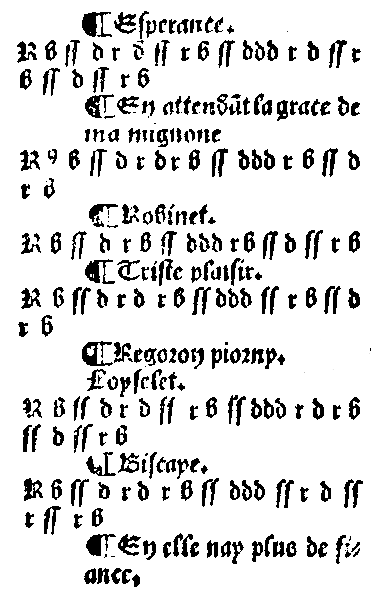 ¶ Esperance.
R b ſſ d r d ſſ r b ſſ ddd r d ſſ r
b ſſ d ſſ r b
¶ En attendāt la grace de
ma mignone
R 9 b ſſ d r d r b ſſ ddd r b ſſ d
r b
¶ Robinet.
R b ſſ d r b ſſ ddd r b ſſ d ſſ r b
¶ Triſte plaiſir.
R b ſſ d r d r b ſſ ddd ſſ r b ſſ d
r b
¶ Regoron piorny.
Loyſelet.
R b ſſ d r d ſſ r b ſſ ddd r d r b
ſſ d ſſ r b
¶ Biſcaye.
R b ſſ d r d r b ſſ ddd ſſ r d ſſ
r ſſ r b
¶ En elle nay plus de fi-
ance.